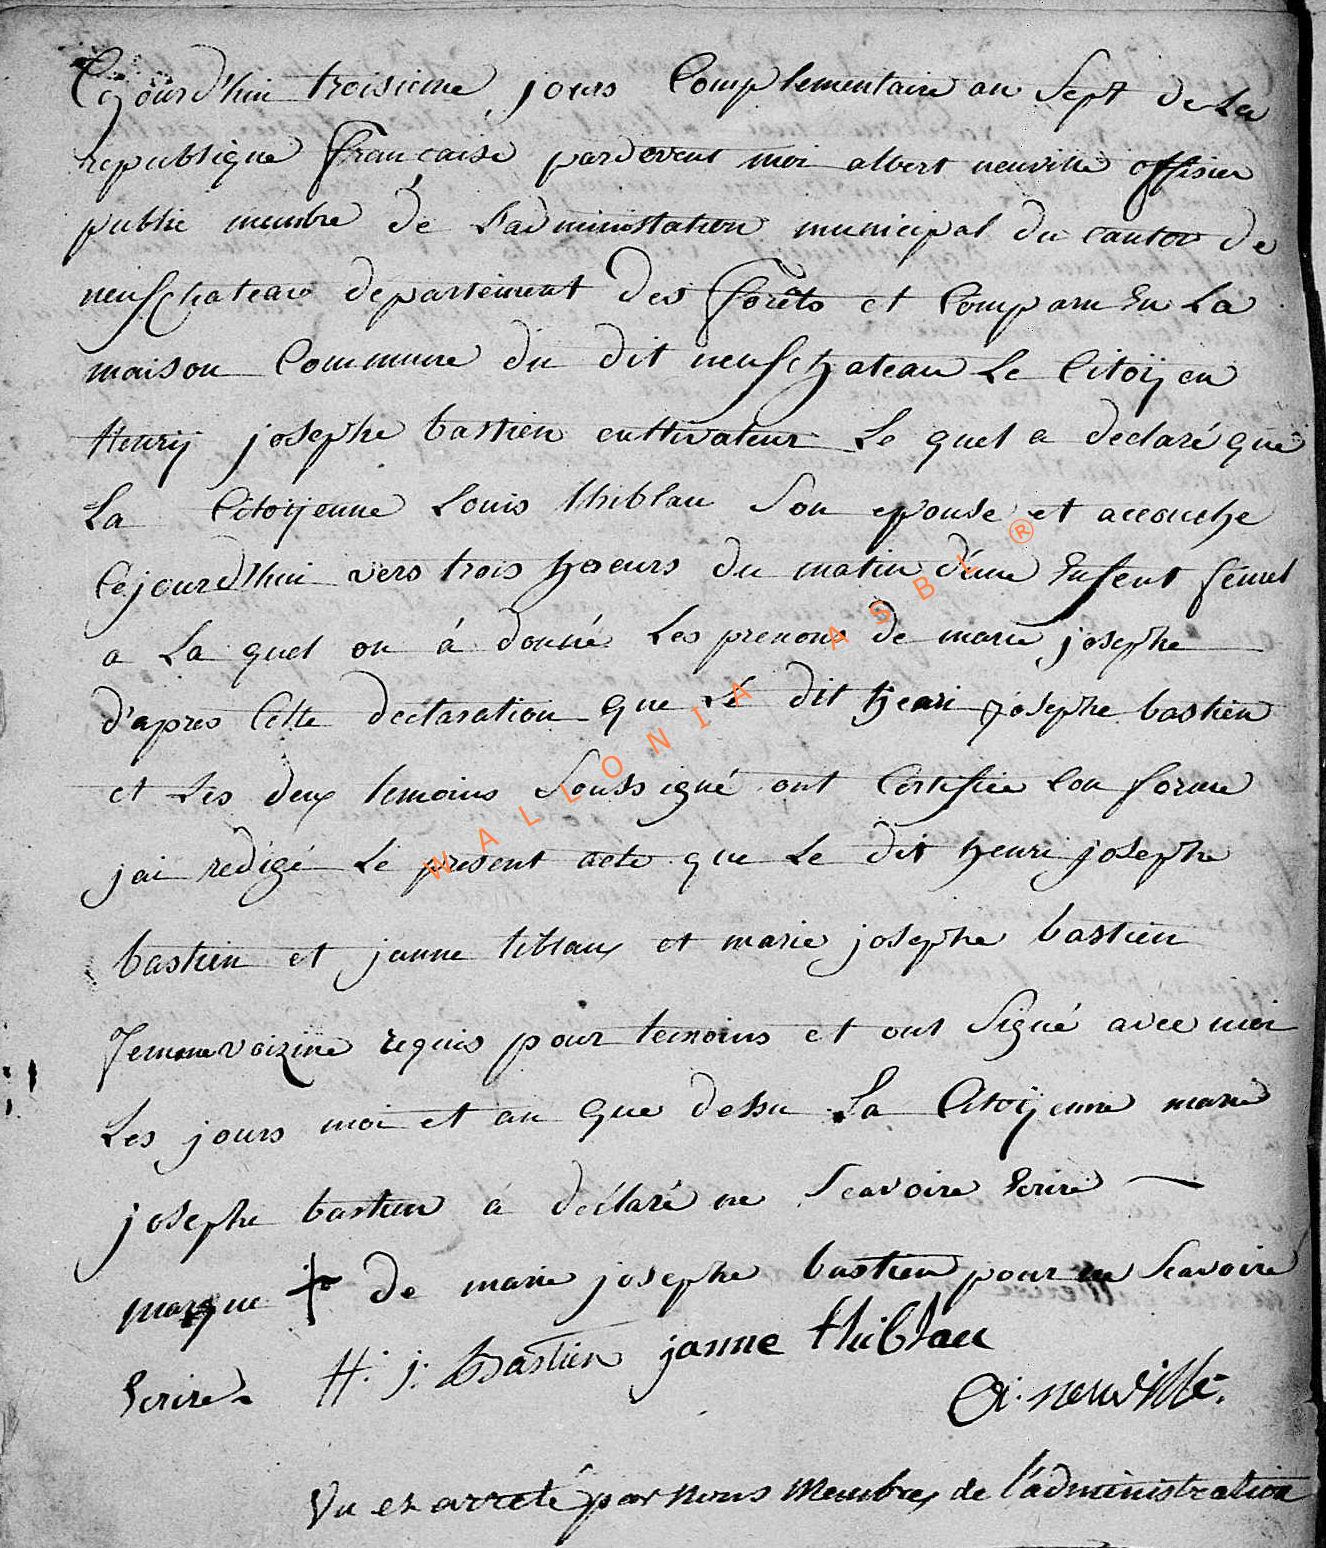 Cejourd'hui troisieme jours Complementaire an Sept de La
republique francaise pardevent moi albert neuville offisier
public membre de L'administation municipal du canton de
neufchateau departement des forêts et Comparu En La
maison Commune du dit neufchateau Le Citoijen
Henrij josephe bastien cultivateur Le quel a declaré que
La Citoijenne Louis thiblau Son epouse et accouche
Cejourd'hui vers trois hoeurs du matin d'une Enfent femel
a La quel on á donné Les prenoms de marie josephe
d'apres Cette declaration que Le dit henri josephe bastien
et Les deux temoins Soussigné ont Certifiée Con forme
jai redigé Le present acte que Le dit henri josephe
bastien et janne tiblaux et marie josephe bastien
femme voizine requis pour temoins et ont Signé avec moi
Les jours moi et an que dessu La Citoijenne marie
josephe bastien á déclaré ne Scavoire Ecrire
marque de marie josephe bastien pour ne Scavoire
Ecrire H. j. Bastien janne thiblau
A. neuville.
Vu et arreté par nous membres de l'administration
WALLONIA ASBL ®